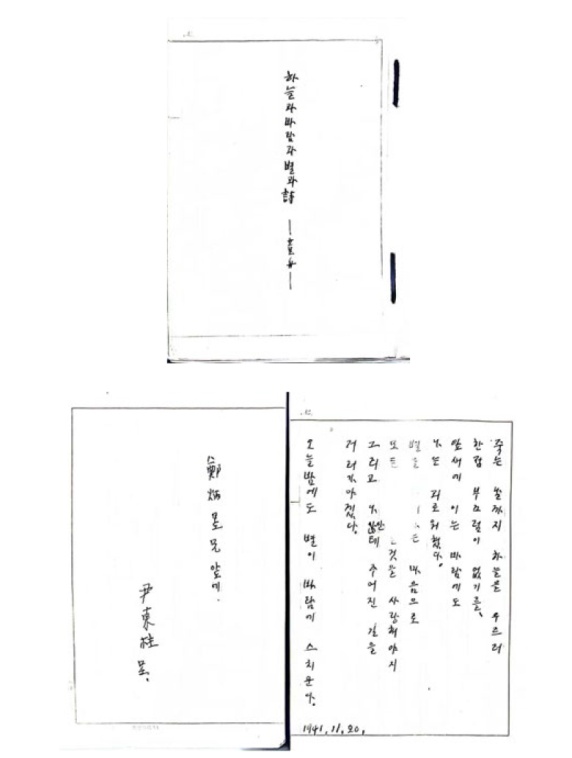 하늘과바람과별과詩
―童舟―
鄭炳昱兄앞에.
尹東柱 呈.
죽는 날까지 하늘을 우르러
한점 부끄럼이 없기를,
잎새에 이는 바람에도
나는 괴로워했다.
별을 는 마음으로
모든 것을 사랑해야지
그리고 나안테 주어진 길을
거러가야겠다.
오늘밤에도 별이 바람에 스치운다.
1941.11.20.